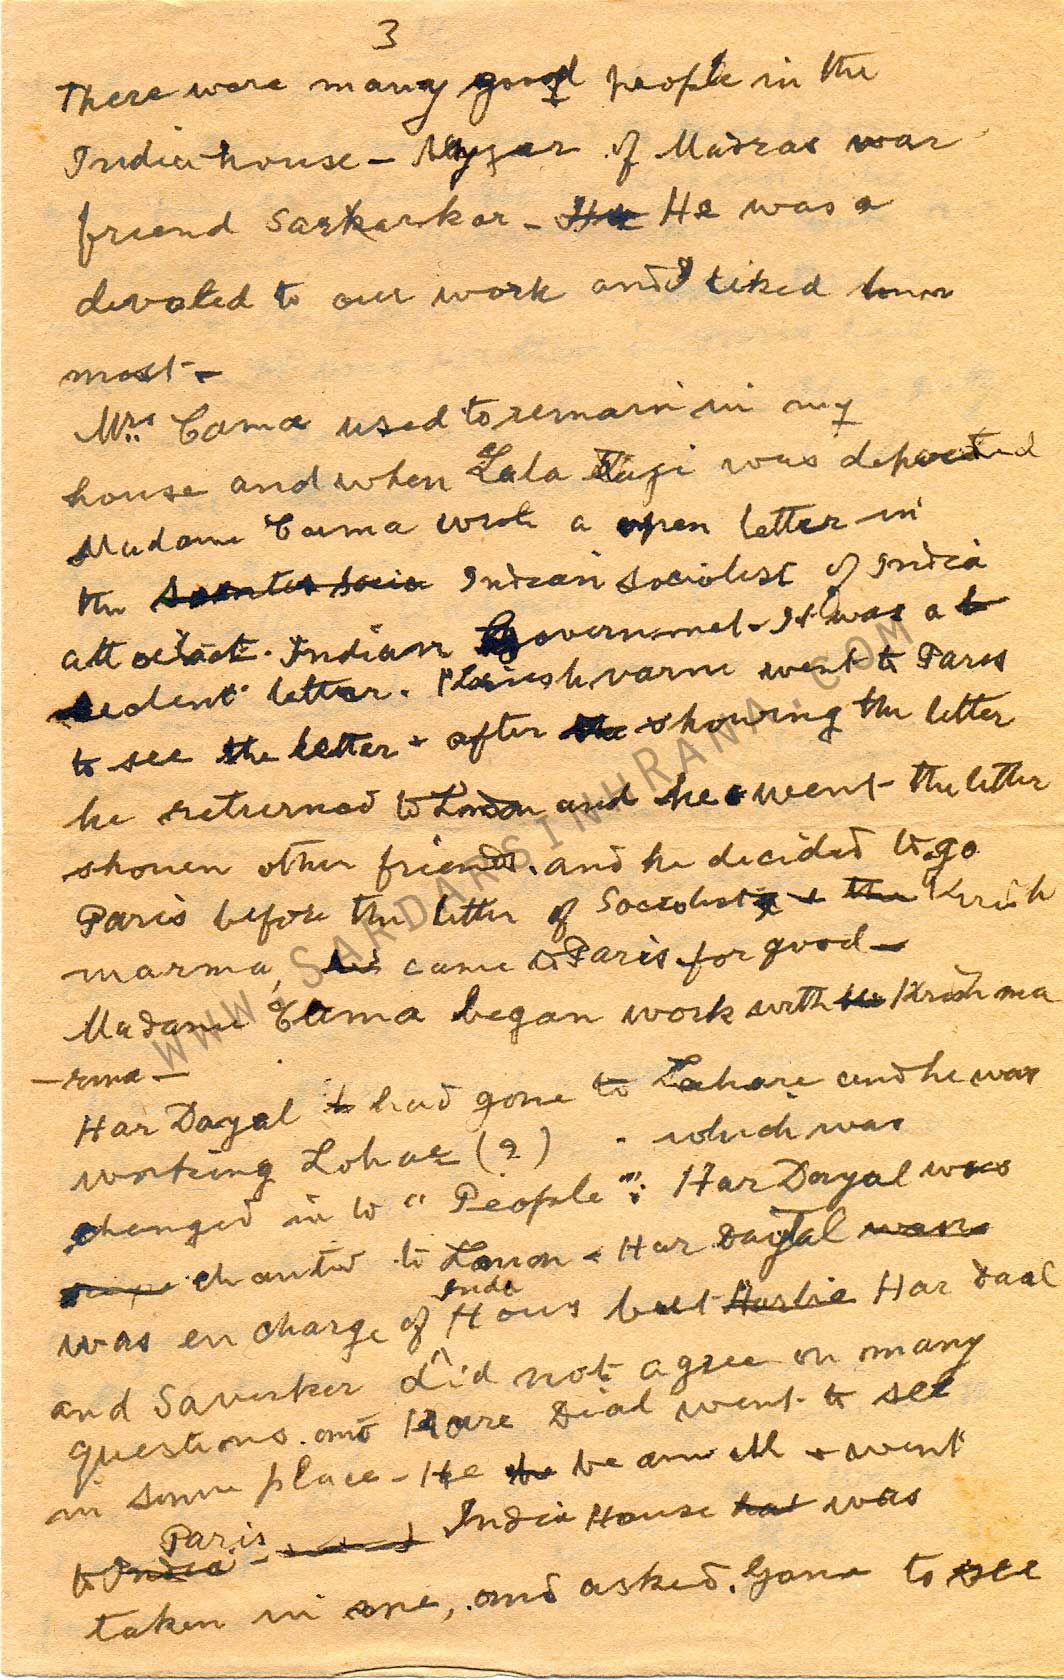 3
There were many good people in the
India house - Ayyar of Madras was
friend Sarkarkar - He He was a
devoted to our work and I liked
most -
Mrs. Cama used to remain in my
house and when Lala was deported
Madame Cama wrote a open letter in
the Indian socolist of India
attack. Indian Governmel. It was a
letter. went to Paris
to see the letter & after the showing the letter
he returned to London and he went the letter
shouen other friends. and he decided to go
Paris before the letter of Socolist & the Krish
marma, his came to Paris for good -
Madame Cama began work with Krishma
- rma -
Har Dayal had gone to Lahore and he was
working Lohar (?) . which was
changed in to "People": Har Dayal was
to Lonon - Har Dayal was
was en charge of India Hous but Har Daal
and Saverker did not agree on many
questions. and Hare Dial went to see
in some place - He he be am ill & went
Paris
to India - India House hat was
taken in one, and asked. Gana to see
WWW.SARDARSINHRANA.COM